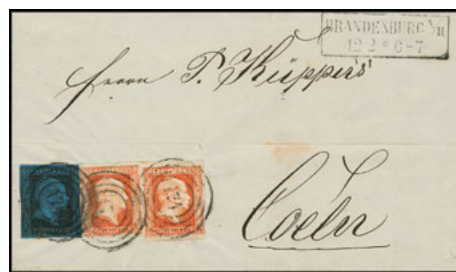 BRANDENBURG A/H
12 2 * 6-7
Herrn P. Küppers
Coeln